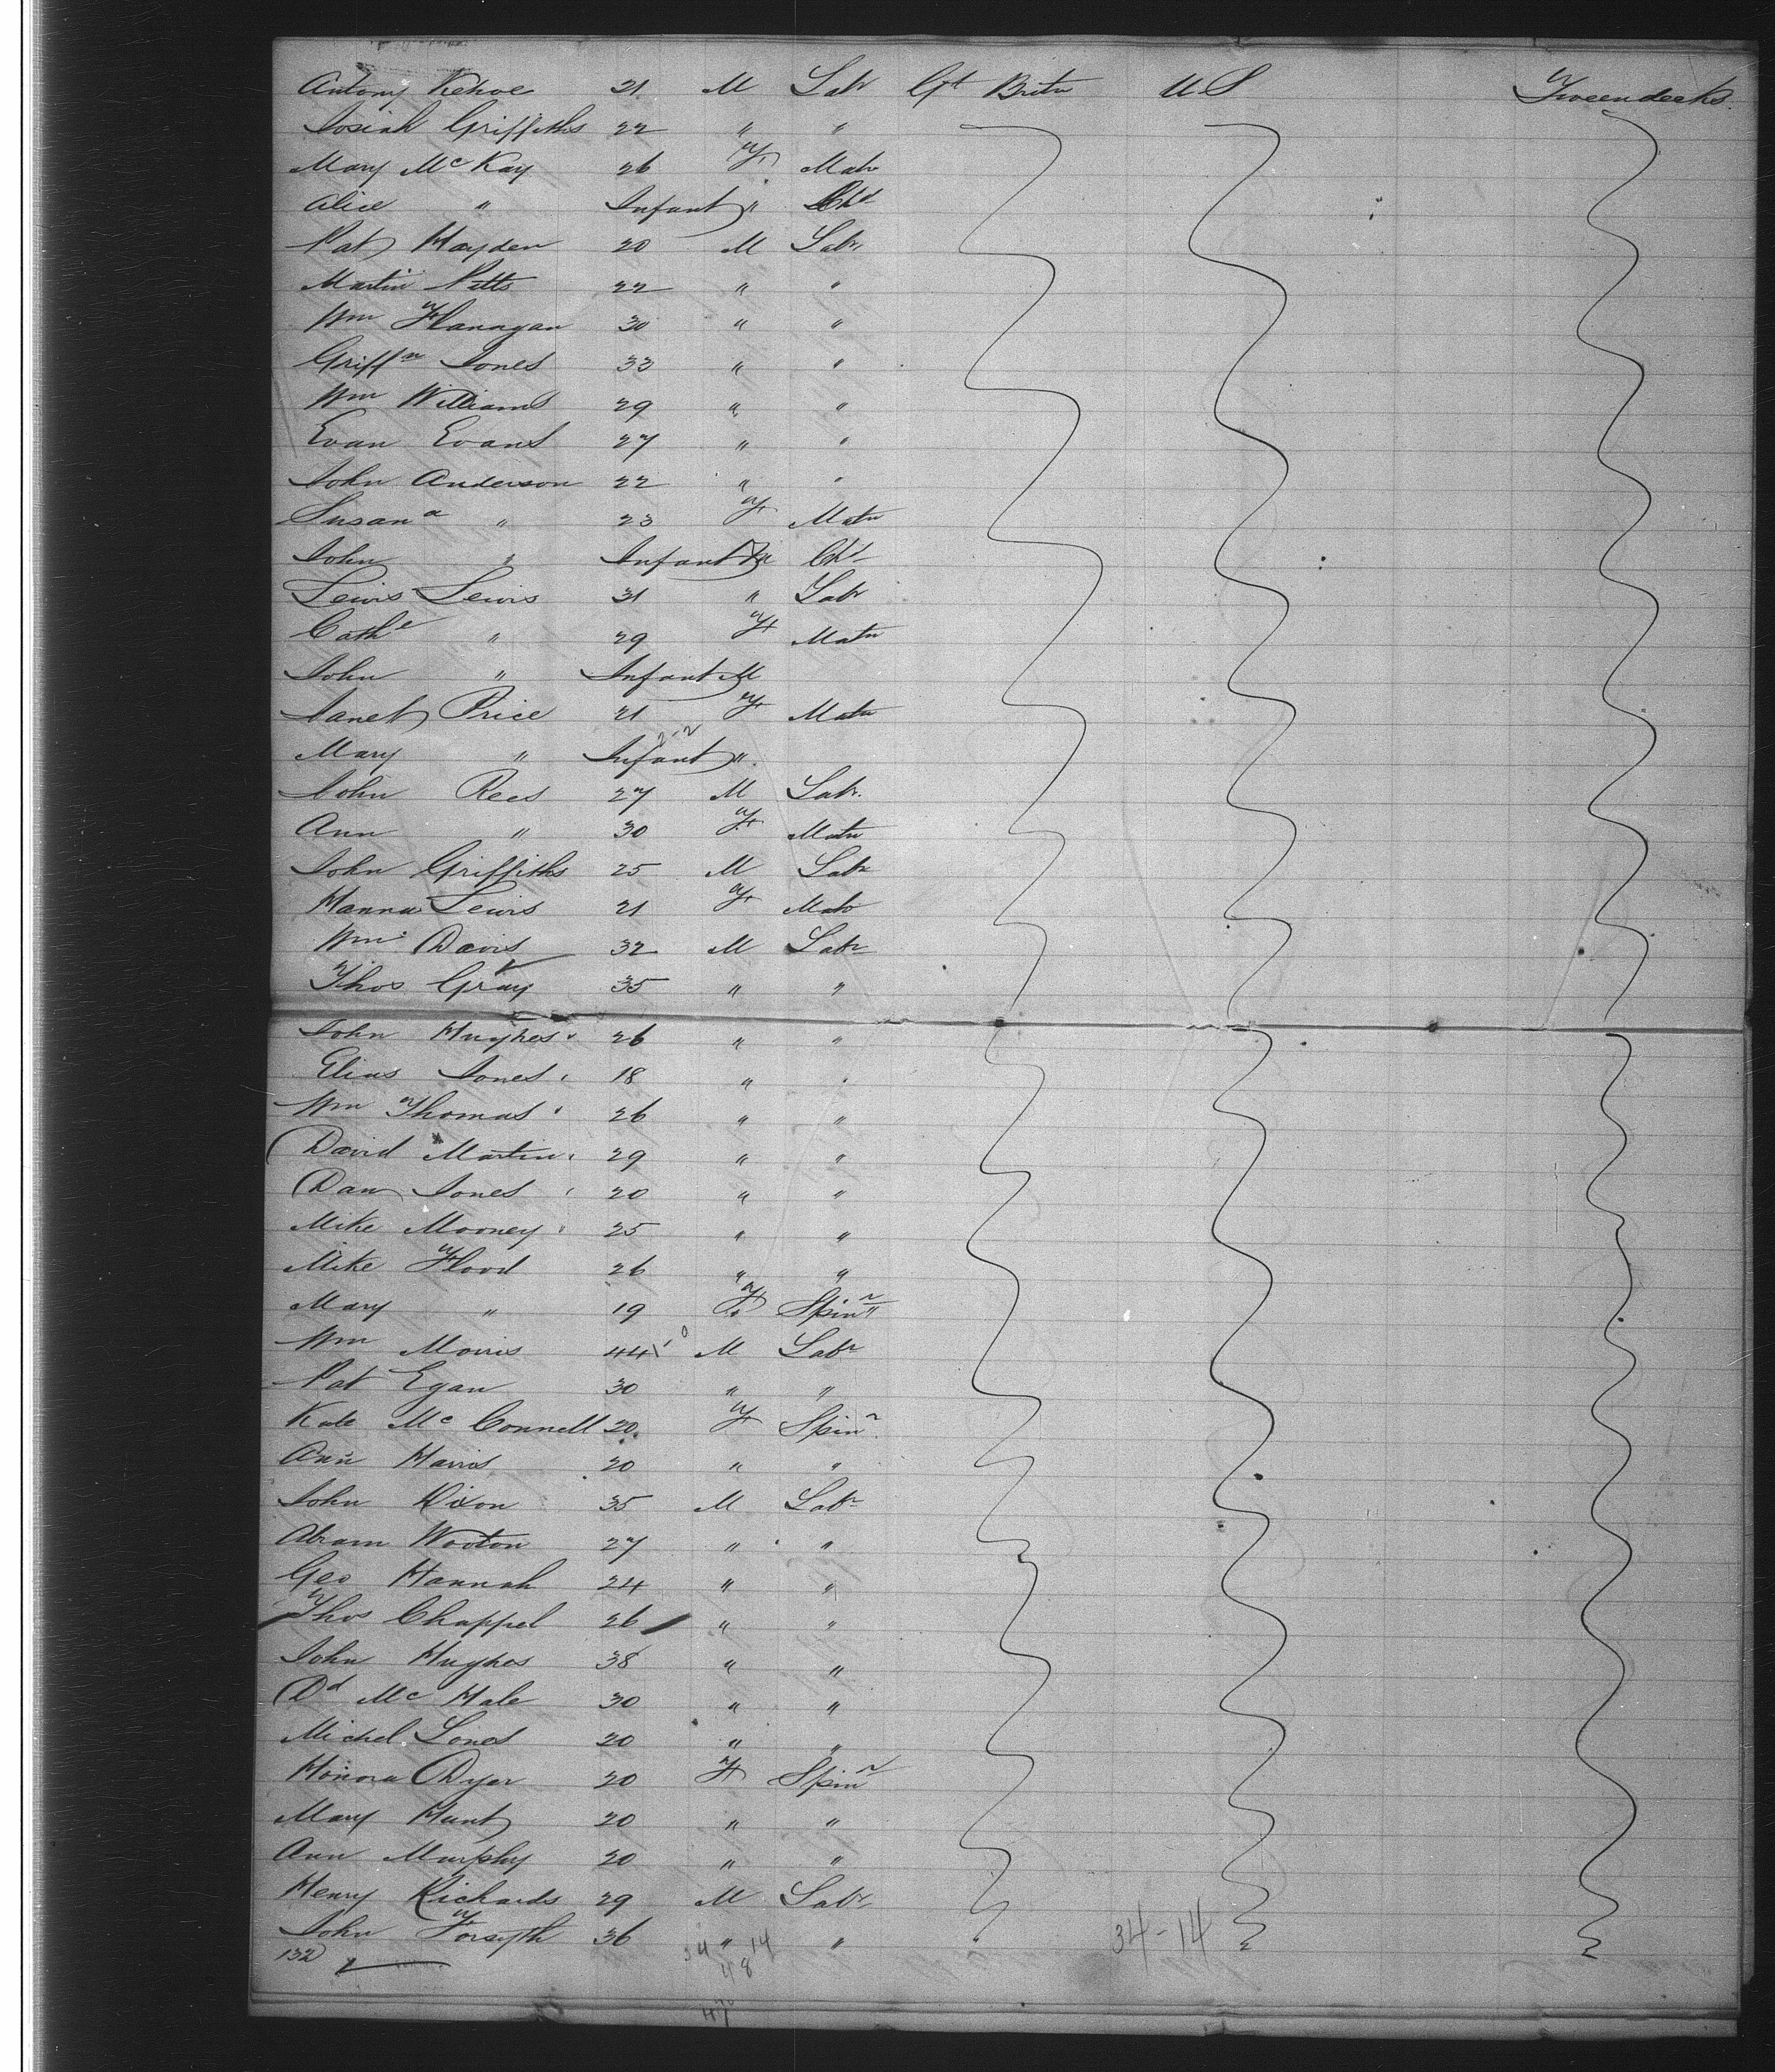 Antony Kehoe 21 M Labr Gt Britn U S Tweendecks.
Josiah Griffiths 22 " "
Mary Mc Kay 26 F Matn
Alice " Infant " Chd
Pat Hayden 20 M Labr
Martin Pitts 22 " "
Wm Flanagan 30 " "
Griffn Jones 33 " "
Wm Williams 29 " "
Evan Evans 27 " "
John Anderson 22 " "
Susana " 23 F Matn
John " Infant M Chd
Lewis Lewis 31 " Labr
Cathe " 29 F Matn
John " Infant M
Janet Price 21 F Matn
Mary " Infant "
John Rees 27 M Labr
Ann " 30 F Matn
John Griffiths 25 M Labr
Hanna Lewis 21 F Matn
Wm Davis 32 M Labr
Thos Gray 35 " "
John Hughes 26 " "
Elias Jones 18 " "
Wm Thomas 26 " "
David Martin 29 " "
Dan Jones 20 " "
Mike Mooney 25 " "
Mike Flood 26 " "
Mary " 19 F Spinr
Wm Morris 44 M Labr
Pat Egan 30 " "
Kate Mc Connell 20 F Spinr
Ann Harris 20 " "
John Dixon 35 M Labr
Abram Wooton 27 " "
Geo Hannah 24 " "
Thos Chappel 26 " "
John Hughes 38 " "
Dd Mc Hale 30 " "
Michel Jones 20 " "
Honora Dyer 20 F Spinr
Mary Hunt 20 " "
Ann Murphy 20 " "
Henry Richards 29 M Labr
John Forsyth 36 " " 34-14
132 34 14
48
47